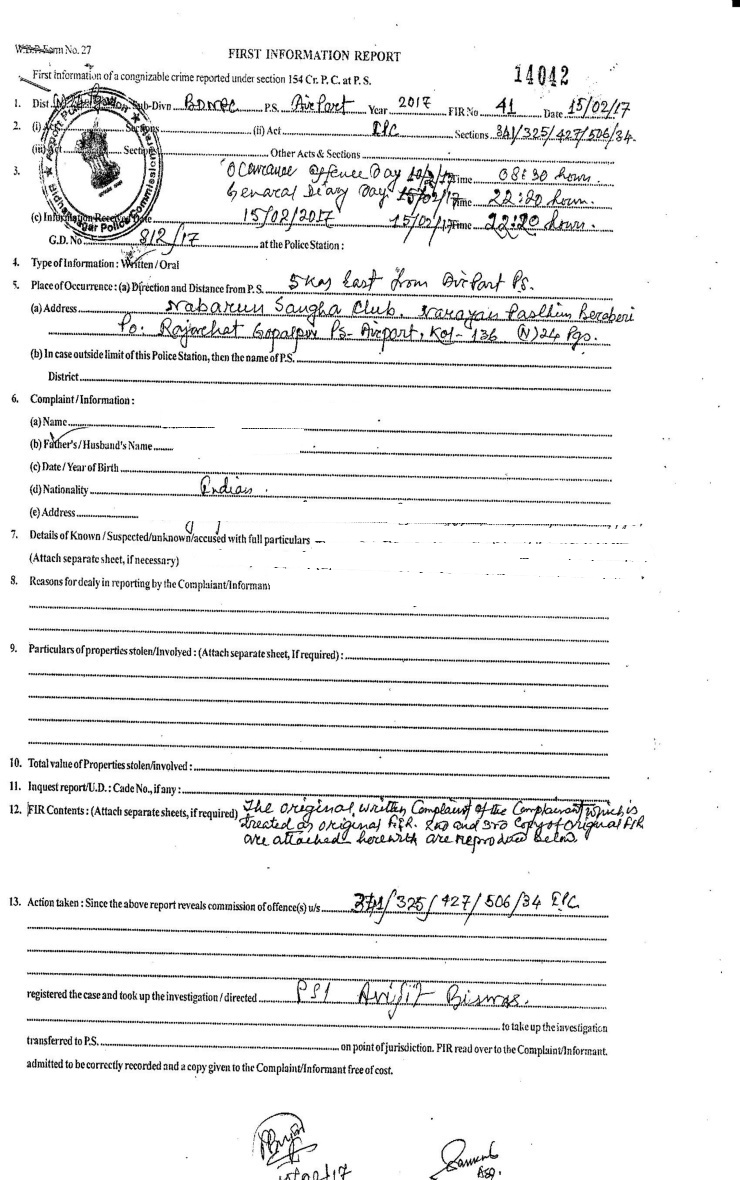 W.B.P. Form No. 27
FIRST INFORMATION REPORT
14042
First information of a congnizable crime reported under section 154 Cr. P. C. at P. S.
1. Dist. Sub-Divn BDNPC P.S. AirPort Year 2017 FIR No 41 Date 15/02/17
2. (i) Act Sections (ii) Act IPC Sections 341/325/427/506/34.
(iii) Act Sections Other Acts & Sections
3. Occurance Offence Day Time 08:30 hours.
General Diary Day 15/02/17 Time 22:20 hours.
(c) Information Received Date 15/02/2017 15/02/17 Time 22:20 hours.
G.D. No 812/17 at the Police Station :
4. Type of Information : Written / Oral
5. Place of Occurrence : (a) Direction and Distance from P. S. 5 Kms East from AirPort Ps.
(a) Address Nabarun Sangha Club, Narayan Beraberi
Po: Gopalpur Ps- Airport, Kol- 136 (N) 24 Pgs.
(b) In case outside limit of this Police Station, then the name of P.S.
District
6. Complaint / Information :
(a) Name
(b) Father's / Husband's Name
(c) Date / Year of Birth
(d) Nationality Indian.
(e) Address
7. Details of Known / Suspected/unknown/accused with full particulars
(Attach separate sheet, if necessary)
8. Reasons for dealy in reporting by the Complaiant/Informant
9. Particulars of properties stolen/Involved : (Attach separate sheet, If required) :
10. Total value of Properties stolen/involved :
11. Inquest report/U.D. : Cade No., if any :
12. FIR Contents : (Attach separate sheets, if required) The original written Complaint of the Complainant which is
treated as original FIR. 2nd and 3rd Copy of original FIR
are attached herewith are reproduced below
13. Action taken : Since the above report reveals commission of offence(s) u/s 341/325/427/506/34 IPC
registered the case and took up the investigation / directed PSI Avijit Biswas.
to take up the investigation
transferred to P.S. on point of jurisdiction. FIR read over to the Complaint/Informant.
admitted to be correctly recorded and a copy given to the Complaint/Informant free of cost.